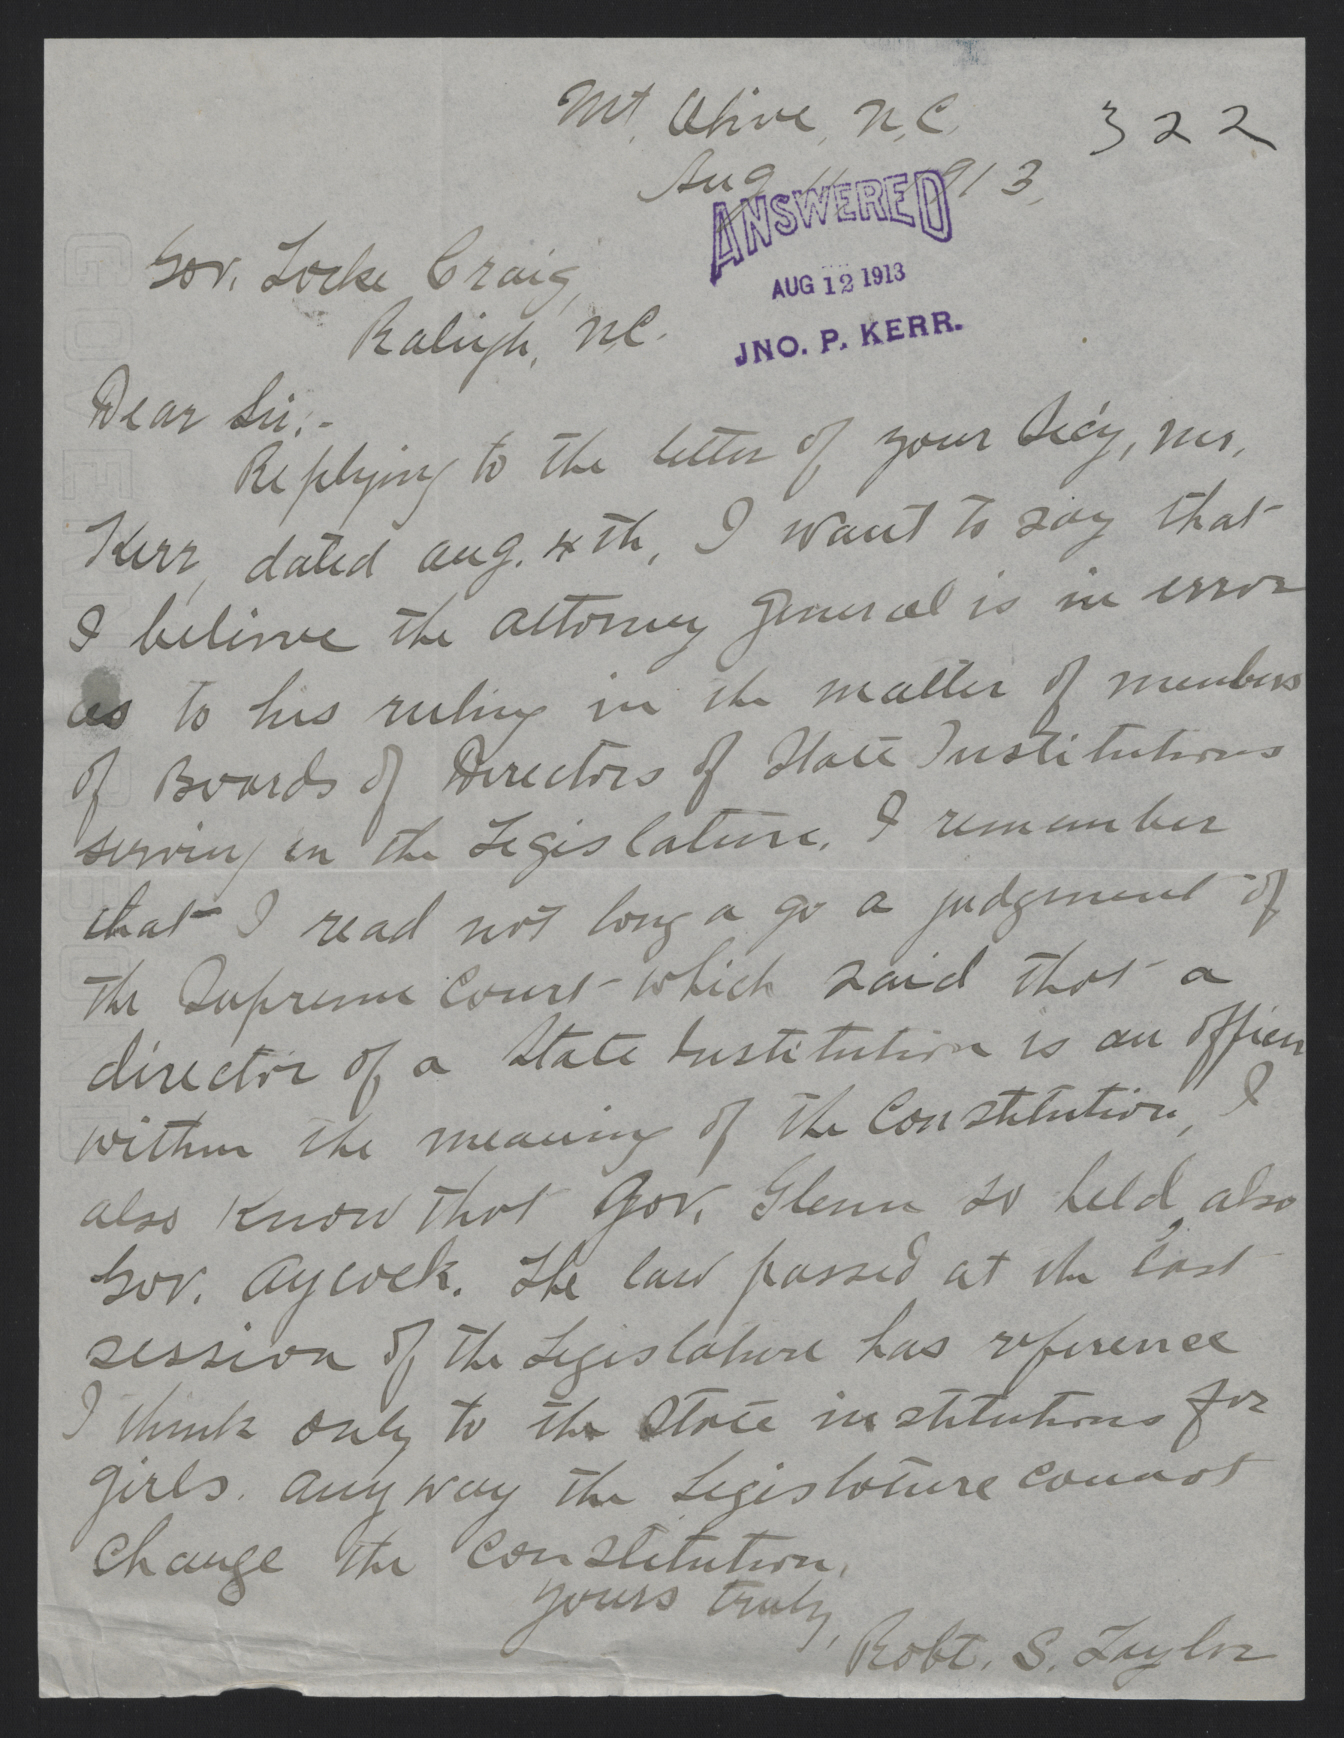 Mt. Olive, N.C.
322
Aug 11 1913,
ANSWERED
AUG 12 1913
JNO. P. KERR.
Gov. Locke Craig,
Raleigh, N.C.
Dear Sir:-
Replying to the letter of your Sec'y, Mr.
Kerr, dated Aug. 4th, I want to say that
I believe the Attorney General is in error
as to his ruling in the matter of members
of Boards of Directors of State Institutions
serving in the Legislature. I remember
that I read not long ago a judgment of
the Supreme Court which said that a
director of a State Institution is an officer
within the meaning of the Constitution, I
also know that Gov. Glenn so held, also
Gov. Aycock. The law passed at the last
session of the Legislature has reference
I think only to the State institutions for
girls. Anyway the Legislature cannot
change the Constitution.
Yours truly,
Robt. S. Taylor